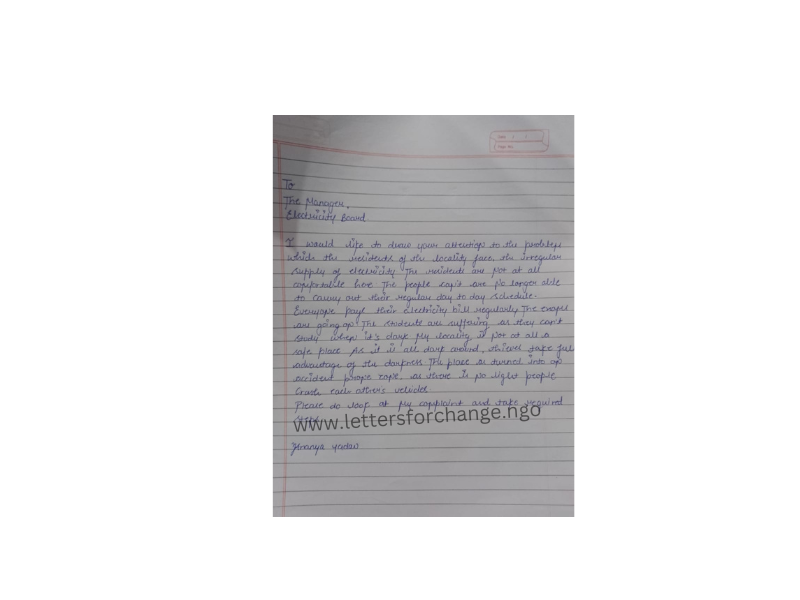 Date / /
Page No.
To
The Manager,
Electricity Board
I would like to draw your attention to the problem
which the residents of the locality face, the irregular
supply of electricity The residents are not at all
comfortable here The people can't are no longer able
to carry out their regular day to day schedule.
Everyone pays their electricity bill regularly The
are going on The students are suffering as they can't
study when it's dark My locality is not at all a
safe place As it is all dark around, thieves take full
advantage of the darkness The place is turned into an
accident prone zone, as there is no light people
Crash each other's vehicles
Please do look at my complaint and take required
steps
www.lettersforchange.ngo
Yadav